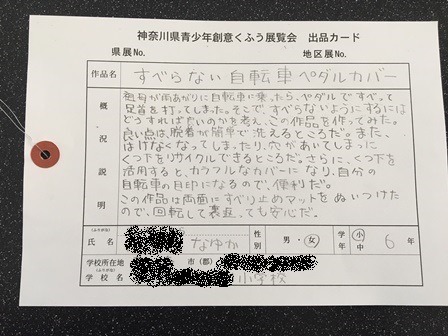 神奈川県青少年創意くふう展覧会 出品カード
県展No. 地区展No.
作品名 すべらない自転車ペダルカバー
概況説明
祖母が雨あがりに自転車に乗ったら、ペダルですべって
足首を打ってしまった。そこで、すべらないようにするには
どうすれば良いのかを考え、この作品を作ってみた。
良い点は、脱着が簡単で洗えるところだ。また、
はけなくなってしまったり、穴があいてしまった
くつ下をリサイクルできるところだ。さらに、くつ下を
活用すると、カラフルなカバーになり、自分の
自転車の目印になるので、便利だ。
この作品は両面にすべり止めマットをぬいつけた
ので、回転して裏返っても安心だ。
(ふりがな)
氏名 なゆか 性別 男・女 学年 小中 6年
学校所在地 市(郡)
(ふりがな)
学校名 小学校